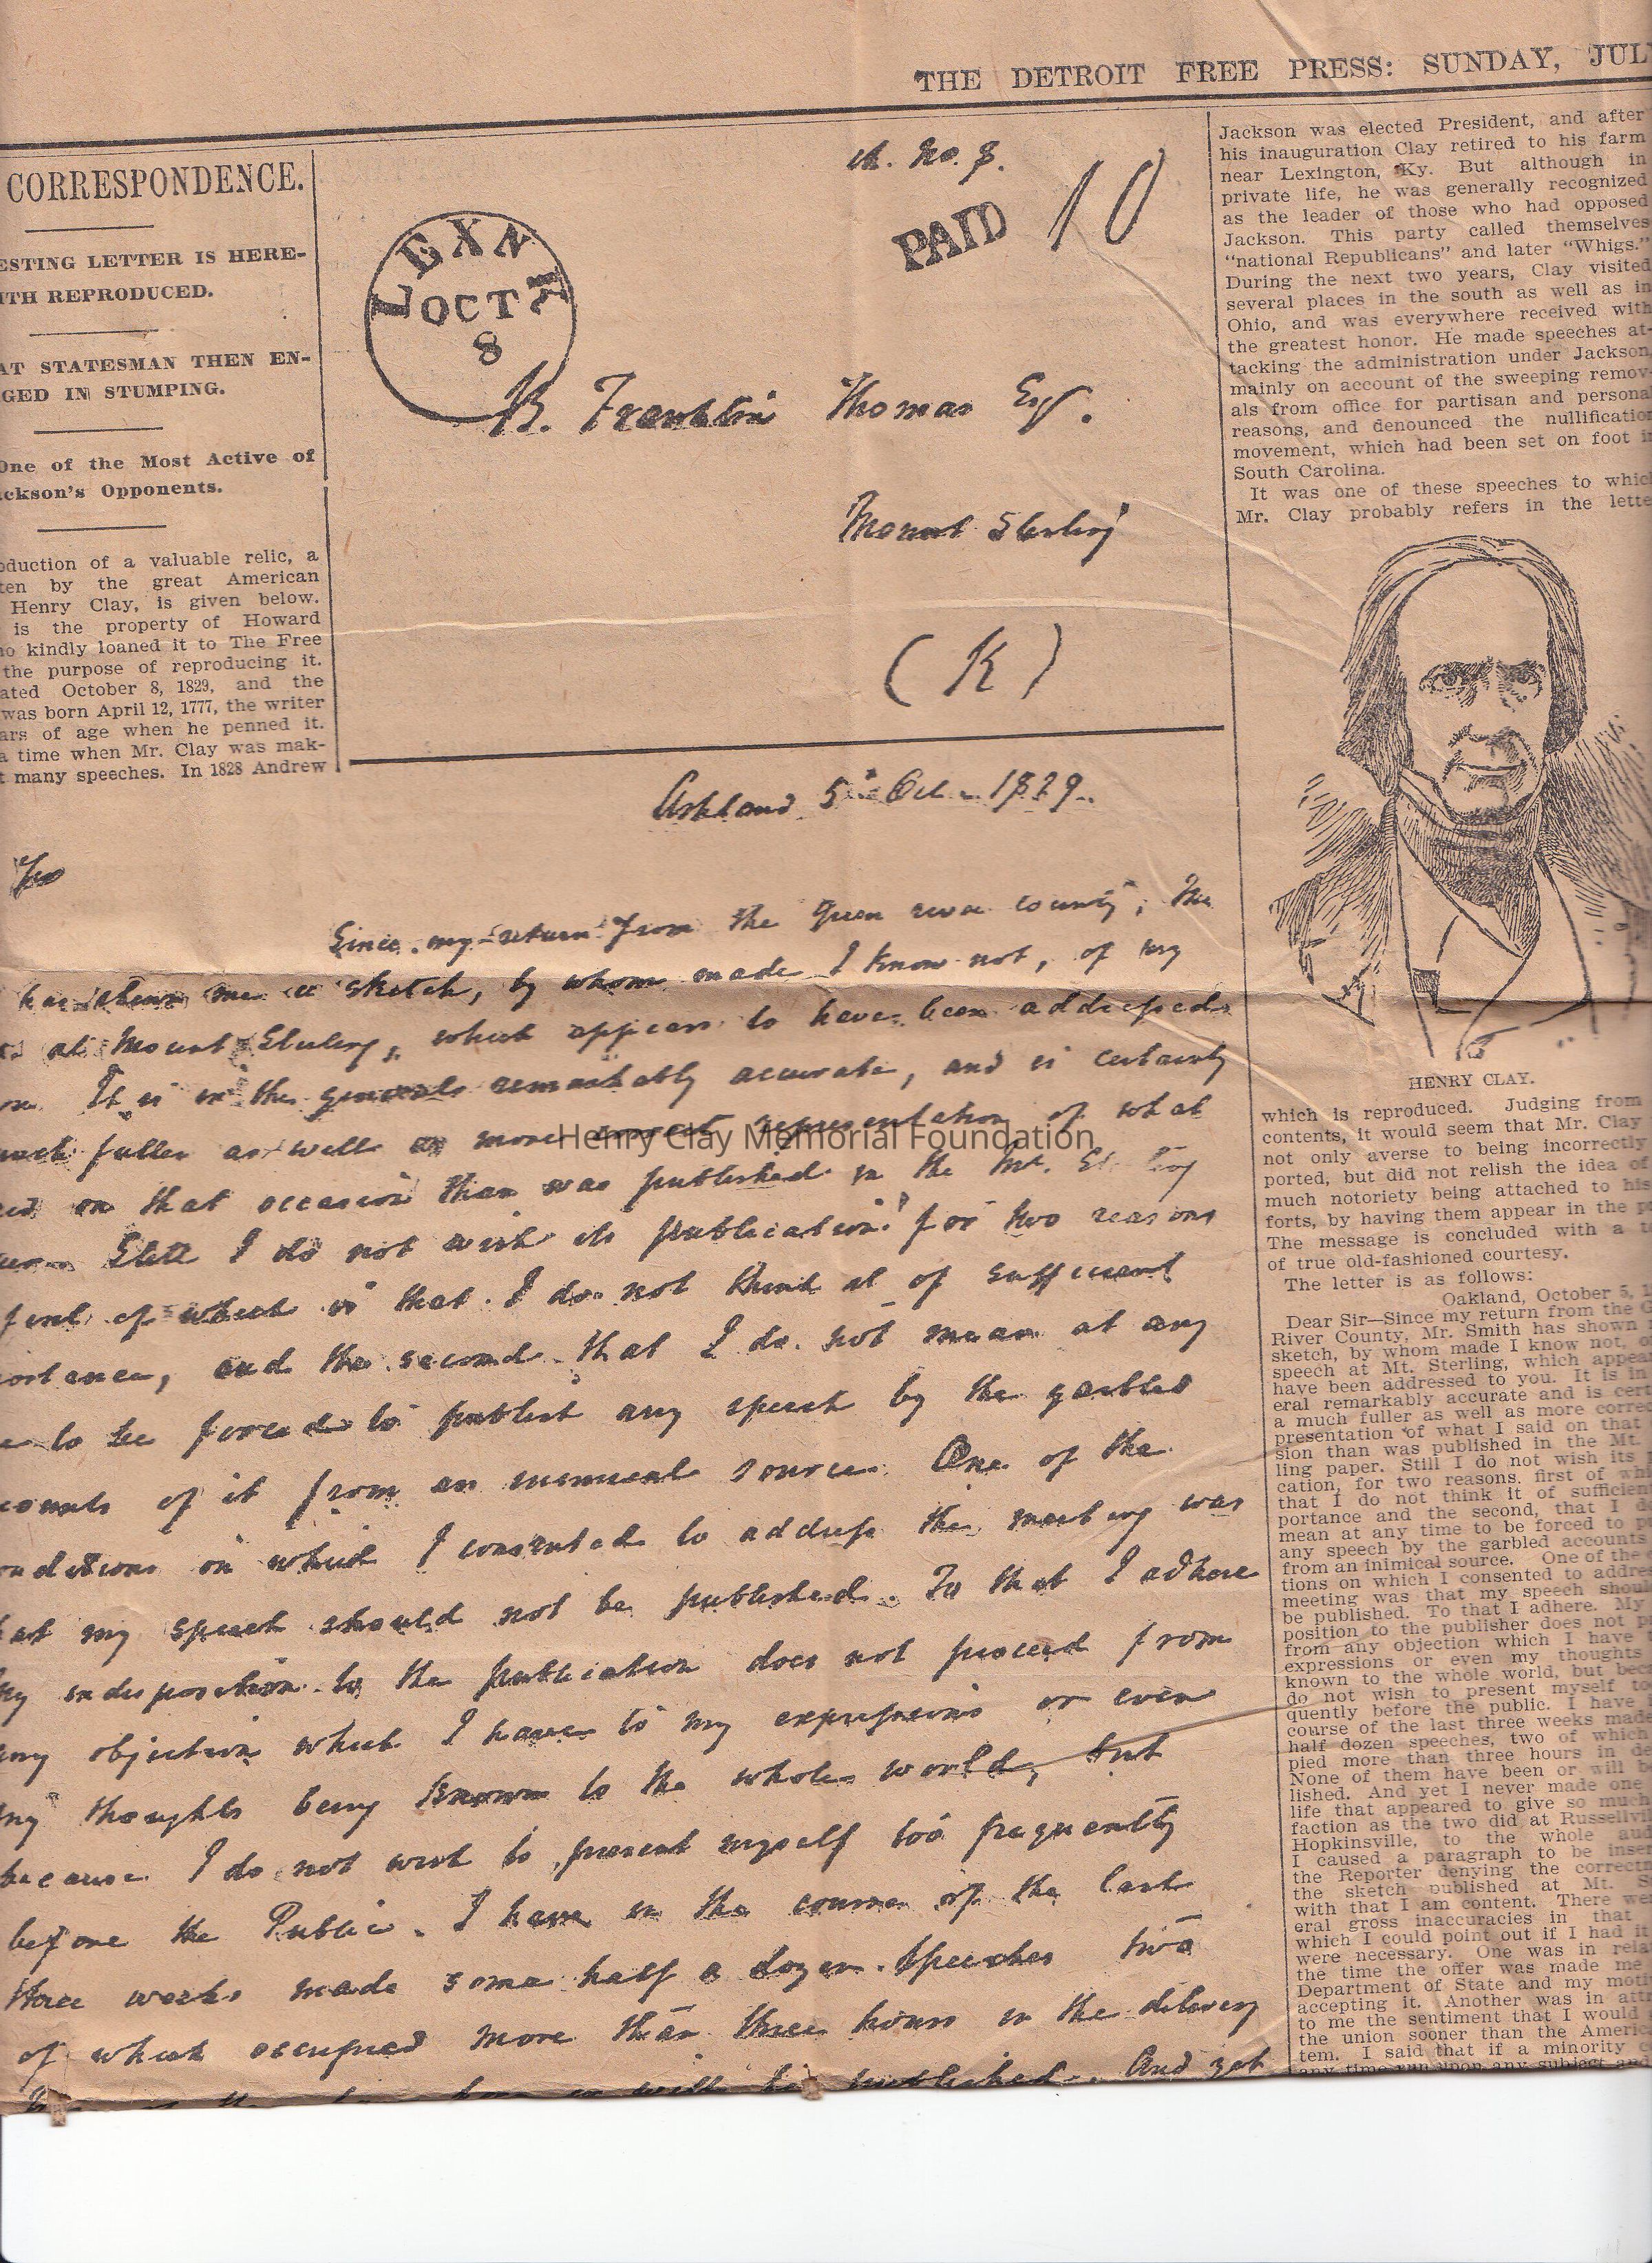 THE DETROIT FREE PRESS: SUNDAY, JUL
CORRESPONDENCE.
ESTING LETTER IS HERE-
ITH REPRODUCED.
AT STATESMAN THEN EN-
GED IN STUMPING.
One of the Most Active of
ckson's Opponents.
oduction of a valuable relic, a
ten by the great American
Henry Clay, is given below.
is the property of Howard
o kindly loaned it to The Free
the purpose of reproducing it.
ated October 8, 1829, and the
was born April 12, 1777, the writer
ars of age when he penned it.
a time when Mr. Clay was mak-
t many speeches. In 1828 Andrew
PAID 10
LEXN
OCT
8
B. Franklin Thomas Esq.
Mount Sterling
(K)
Ashland 5th Oct. 1829.
Since my return from the Green river county, Mr
has shewn me a sketch, by whom made I know not, of my
at Mount Sterling, which appears to have been addressed
It is in the general remarkably accurate, and is certainly
much fuller as well as more correct representation of what
said on that occasion than was published in the Mt. Sterling
Still I do not wish its publication for two reasons
first of which is that I do not think it of sufficient
ortance, and the second that I do not mean at any
e to be forced to publish any speech by the garbled
counts of it from an inimical source. One of the
onditions on which I consented to address the meeting was
hat my speech should not be published. To that I adhere
My indisposition to the publication does not proceed from
any objection which I have to my expressions or even
my thoughts being known to the whole world, but
because I do not wish to present myself too frequently
before the Public. I have in the course of the last
three weeks made some half a dozen speeches two
of which occupied more than three hours in the delivery
been or will be published. And yet
Jackson was elected President, and after
his inauguration Clay retired to his farm
near Lexington, Ky. But although in
private life, he was generally recognized
as the leader of those who had opposed
Jackson. This party called themselves
"national Republicans" and later "Whigs."
During the next two years, Clay visited
several places in the south as well as in
Ohio, and was everywhere received with
the greatest honor. He made speeches at-
tacking the administration under Jackson,
mainly on account of the sweeping remov-
als from office for partisan and persona
reasons, and denounced the nullification
movement, which had been set on foot i
South Carolina.
It was one of these speeches to which
Mr. Clay probably refers in the lette
HENRY CLAY.
which is reproduced. Judging from
contents, it would seem that Mr. Clay
not only averse to being incorrectly
ported, but did not relish the idea of
much notoriety being attached to his
forts, by having them appear in the p
The message is concluded with a t
of true old-fashioned courtesy.
The letter is as follows:
Oakland, October 5, 1
Dear Sir—Since my return from the G
River County, Mr. Smith has shown
sketch, by whom made I know not, o
speech at Mt. Sterling, which appea
have been addressed to you. It is in
eral remarkably accurate and is cert
a much fuller as well as more correc
presentation of what I said on that
sion than was published in the Mt.
ling paper. Still I do not wish its
cation, for two reasons, first of whi
that I do not think it of sufficien
portance and the second, that I d
mean at any time to be forced to p
any speech by the garbled accounts
from an inimical source. One of the
tions on which I consented to addre
meeting was that my speech shou
be published. To that I adhere. My
position to the publisher does not p
from any objection which I have
expressions or even my thoughts
known to the whole world, but bec
do not wish to present myself to
quently before the public. I have
course of the last three weeks made
half dozen speeches, two of which
pied more than three hours in de
None of them have been or will b
lished. And yet I never made one
life that appeared to give so much
faction as the two did at Russellvi
Hopkinsville, to the whole aud
I caused a paragraph to be inser
the Reporter denying the correct
the sketch published at Mt. S
with that I am content. There we
eral gross inaccuracies in that
which I could point out if I had it
were necessary. One was in rela
the time the offer was made me
Department of State and my moti
accepting it. Another was in attr
to me the sentiment that I would
the union sooner than the Americ
tem. I said that if a minority
any time run upon any subject and
Henry Clay Memorial Foundation